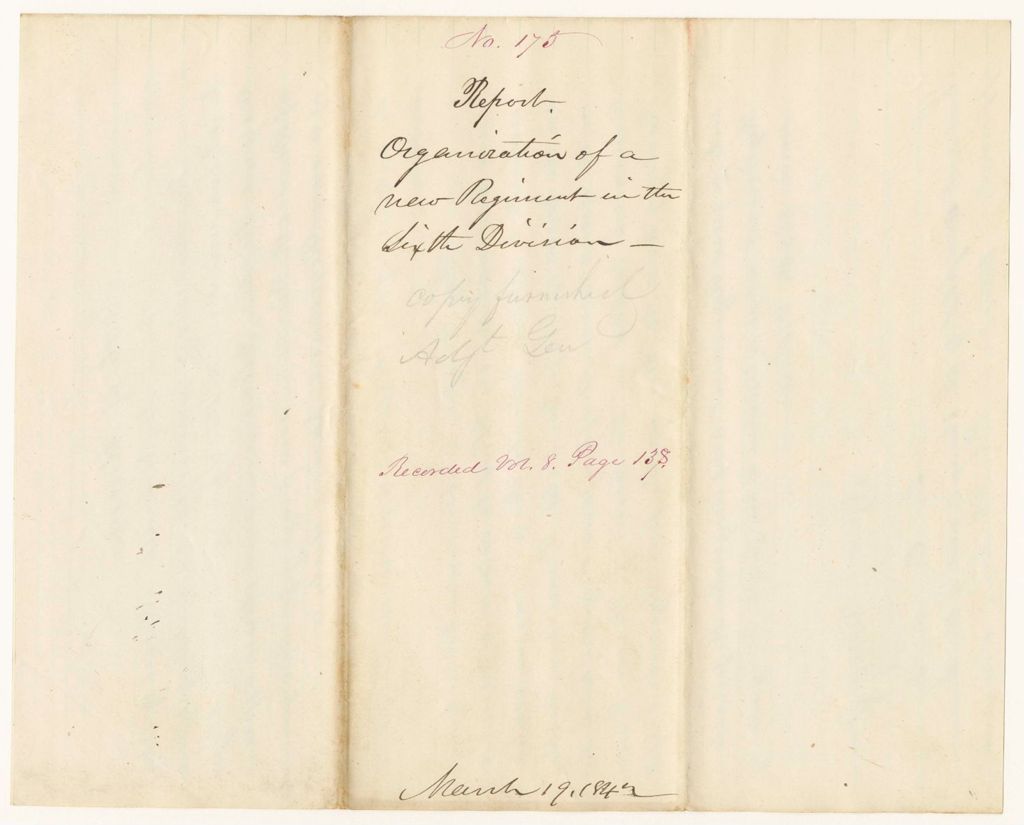 No. 175
Report.
Organization of a
new Regiment in the
Sixth Division —
copy furnished
Adjt Gen
Recorded Vol. 8. Page 138.
March 19. 1842